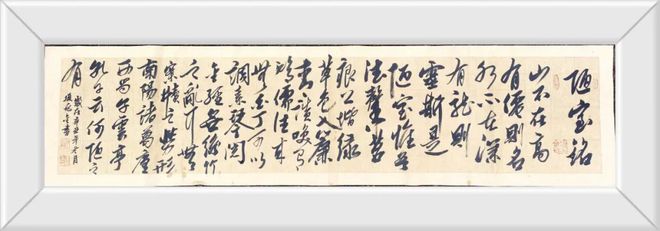 陋室铭
山不在高
有僊則名
水不在深
有龍則
靈斯是
陋室惟吾
德馨苔
痕上階緑
草色入簾
青談笑有
鴻儒往来
無白丁可以
調素琴閲
金經無絲竹
之亂耳無
案牘之勞形
南陽諸葛廬
西蜀子雲亭
孔子云何陋之
有
歲次辛丑年冬月